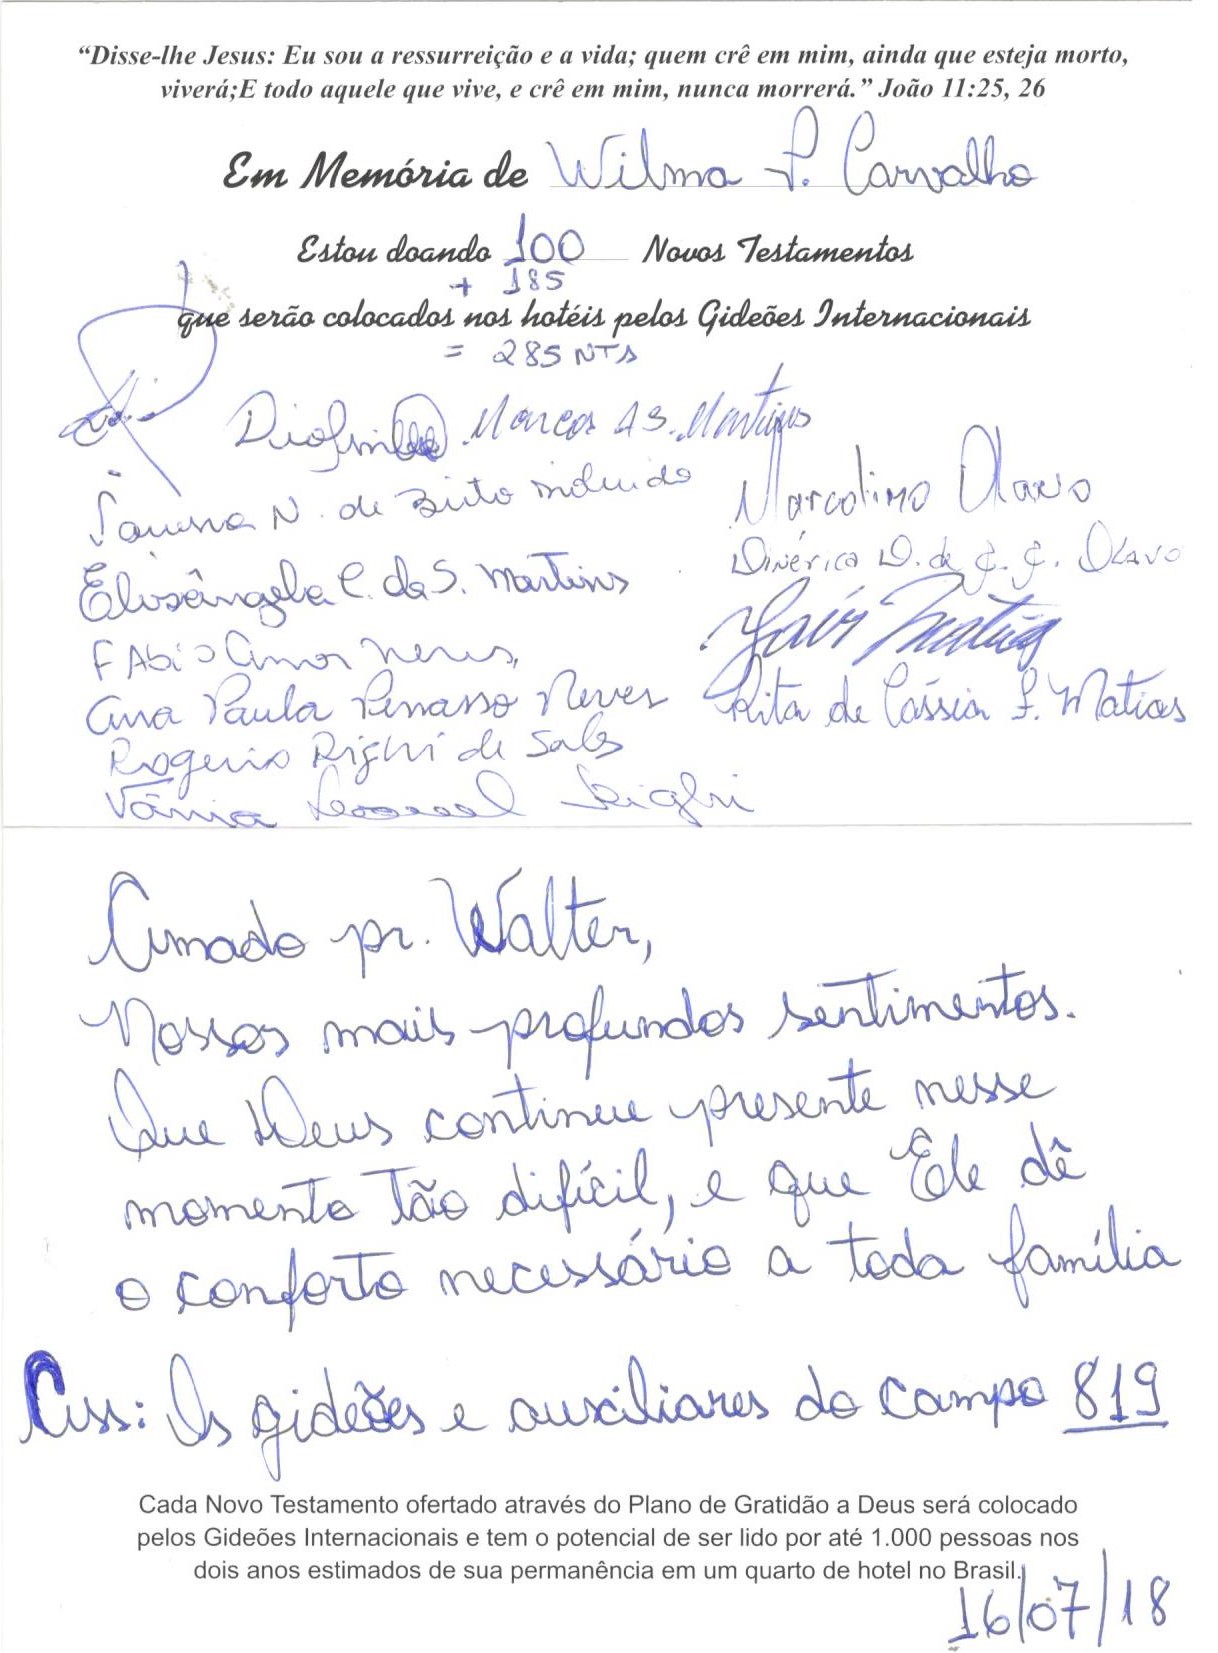 “Disse-lhe Jesus: Eu sou a ressurreição e a vida; quem crê em mim, ainda que esteja morto,
viverá;E todo aquele que vive, e crê em mim, nunca morrerá.” João 11:25, 26
Em Memória de Wilma P. Carvalho
Estou doando 100 Novos Testamentos
+ 185
que serão colocados nos hotéis pelos Gideões Internacionais
= 285 NTs
Marcos A S. Martins
N. de Brito
Marcolino Olavo
Elisângela C. da S. Martins
Dinérica D. de J. G. Olavo
Fábio Amor Neves
Ana Paula Neves
Rita de Cássia F. Matias
Rogerio Righi de Sales
Vânia Righi
Amado pr. Walter,
Nossos mais profundos sentimentos.
Que Deus continue presente nesse
momento tão difícil, e que Ele dê
o conforto necessário a toda família
Ass: Os gideões e auxiliares do campo 819
Cada Novo Testamento ofertado através do Plano de Gratidão a Deus será colocado
pelos Gideões Internacionais e tem o potencial de ser lido por até 1.000 pessoas nos
dois anos estimados de sua permanência em um quarto de hotel no Brasil.
16/07/18